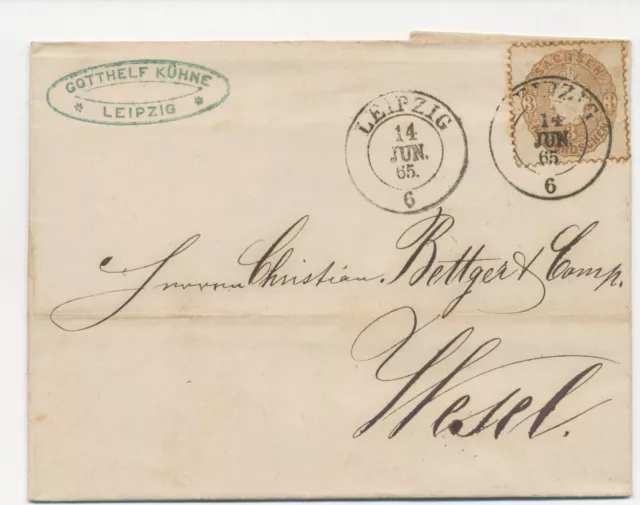 GOTTHELF KÜHNE
* LEIPZIG *
LEIPZIG
14
JUN.
65.
6
SACHSEN
3 3
LEIPZIG
14
JUN.
65.
6
Herren Christian Bettger & Comp.
Wesel.